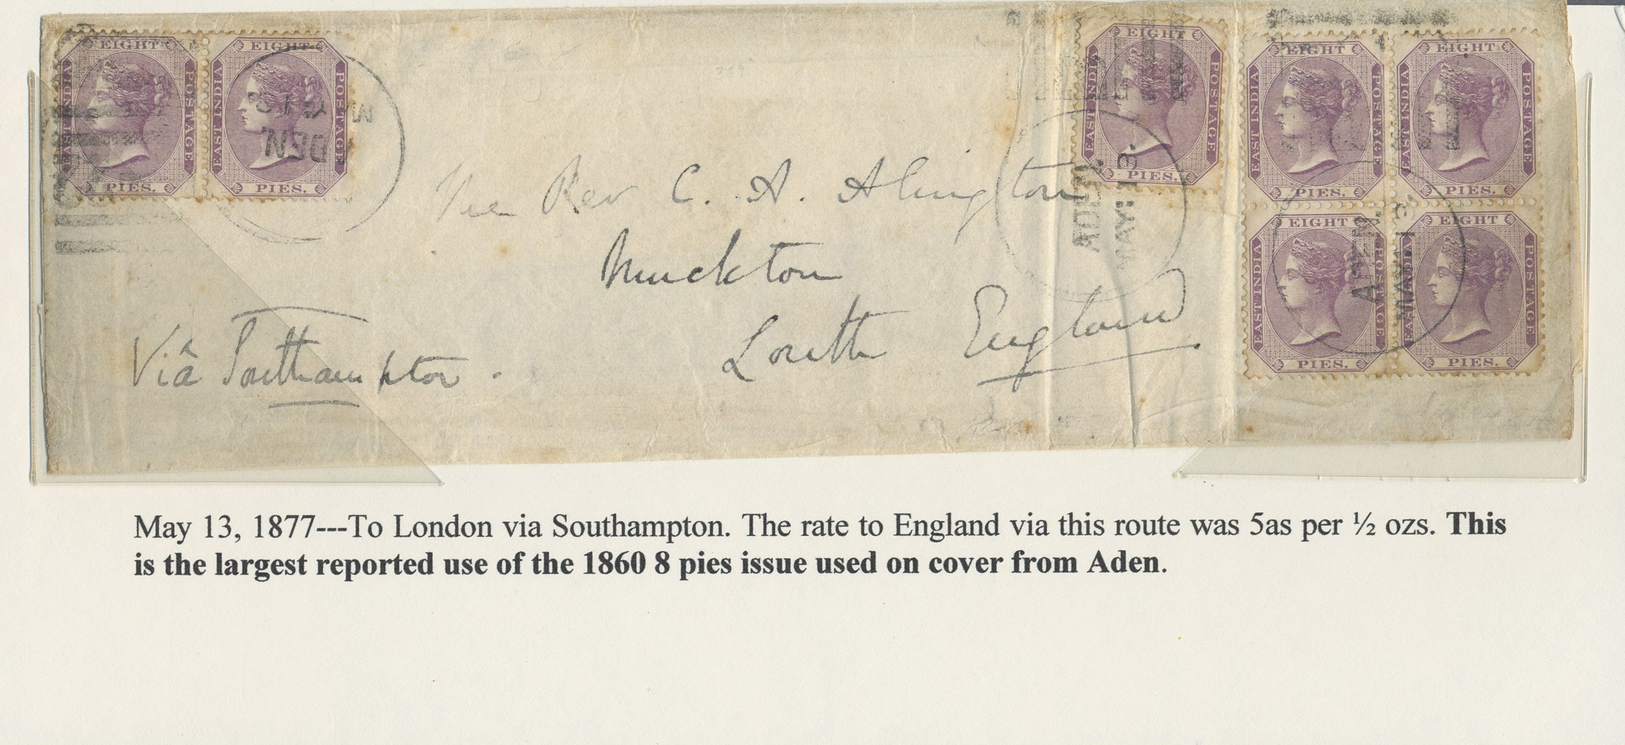 EIGHT EIGHT EIGHT EIGHT EIGHT
EAST INDIA POSTAGE EAST INDIA POSTAGE EAST INDIA POSTAGE EAST INDIA POSTAGE EAST INDIA POSTAGE
PIES. PIES. PIES. PIES. PIES.
ADEN.
MAY 13
The Rev C. A. Alington
Muckton
Louth England
Viâ Southampton.
ADEN.
MAY 13.
EIGHT EIGHT
EAST INDIA POSTAGE EAST INDIA POSTAGE
PIES. PIES.
ADEN.
MAY 13
May 13, 1877---To London via Southampton. The rate to England via this route was 5as per ½ ozs. This
is the largest reported use of the 1860 8 pies issue used on cover from Aden.